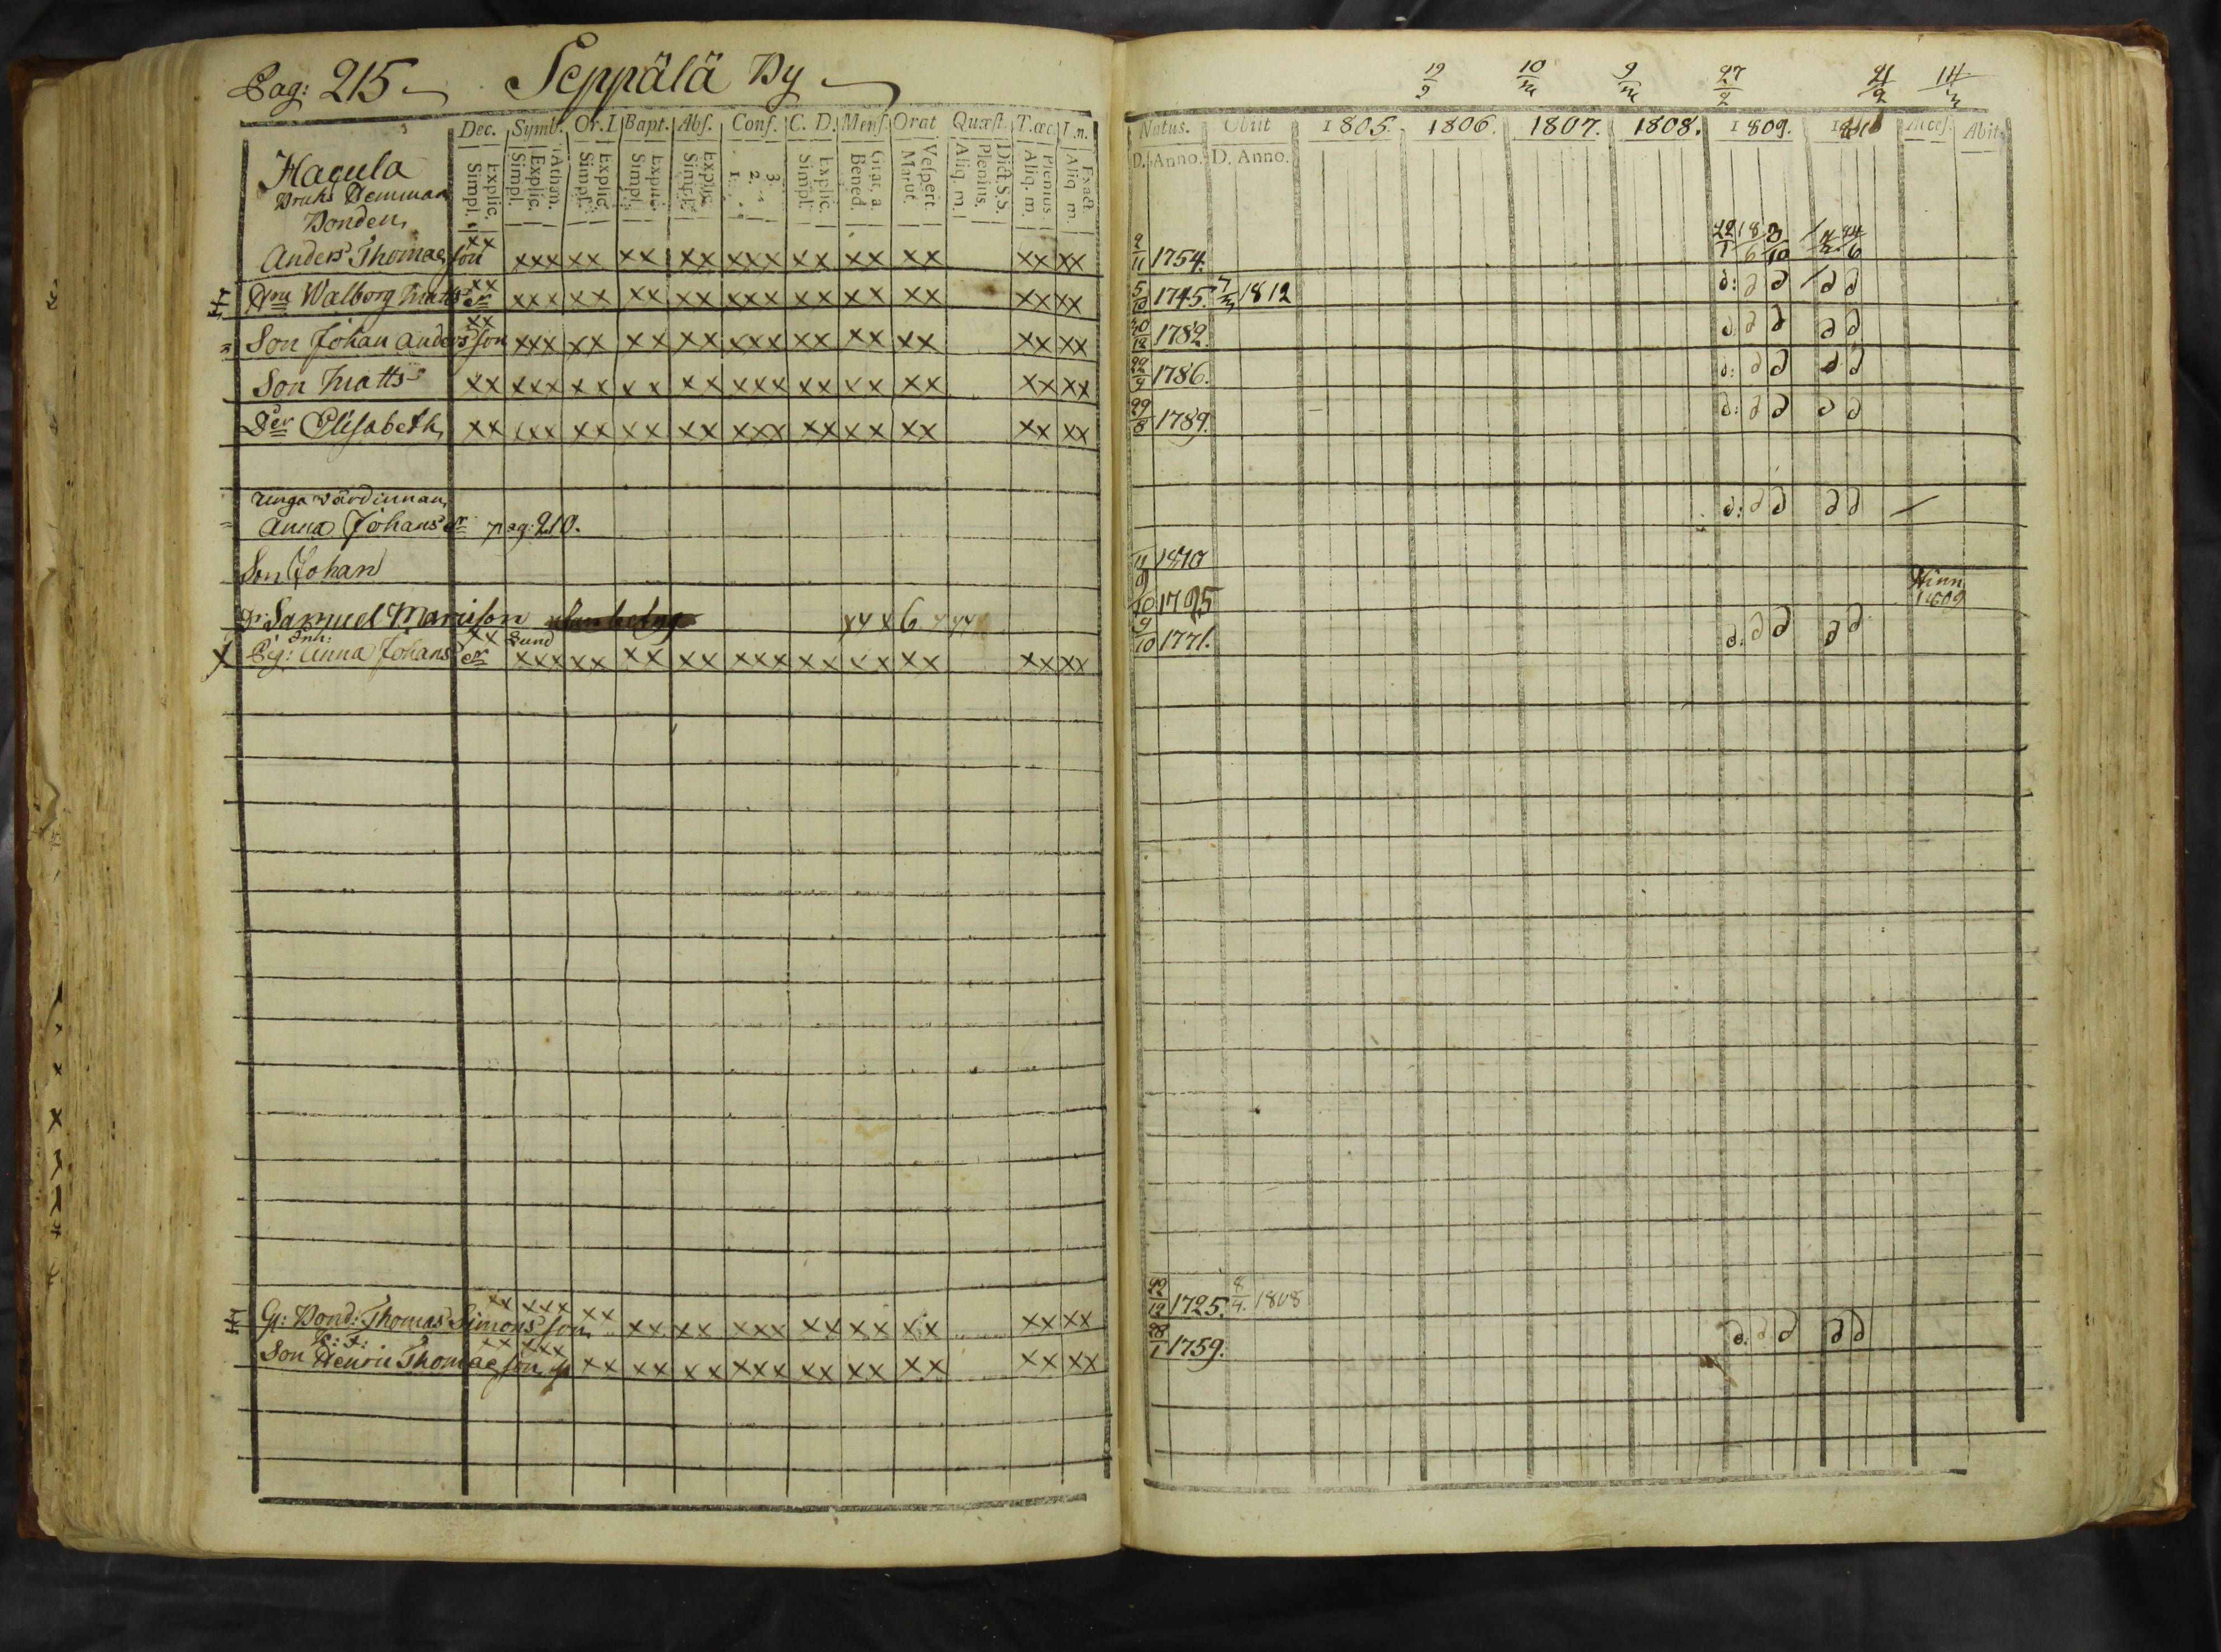 Pag: 215 Seppälä By
19/9 10/m 9/m 27/2 21/2 14/3
Dec. Symb. Or. D. Bapt. Abs. Conf. C. D. Mens. Orat Quæst. T. œc. L. n.
Natus. Obiit 1805. 1806. 1807. 1808. 1809. Acces. Abit.
Explic. Simpl. Athan. Explic. Simpl. Explic. Simpl. Explic. Simpl. Explic. Simpl. 3. 2. 1. Explic. Simpl. Grat. a. Bened. Vespert. Matut. Dict. S. S. Plenius. Aliq. m. Plenius. Aliq. m. Exact. Aliq. m.
D. Anno. D. Anno.
Hagula
Bruks Demman
Bonden
Anders Thomae son xx xxx xx xx xx xxx xx xx xx xx xx 2/11 1754. 22/1 18/6 3/10 24/6
Hru Walborg Matts dr xx xxx xx xx xx xxx xx xx xx xx xx 5/10 1745. 7/3 1812
Son Johan Anders son xx xxx xx xx xx xxx xx xx xx xx xx 30/12 1782.
Son Matts xx xxx xx xx xx xxx xx xx xx xx xx 22/9 1786.
Der Elisabeth xx xxx xx xx xx xxx xx xx xx xx xx 29/8 1789.
unga värdinnan
Anna Johans dr pag: 210.
Son Johan 1810
Dr: Samuel Mariæson xx x 6 9/10 1795 1809
Inh:
Pig: Anna Johans dr xx Sund xxx xx xx xx xxx xx xx xx xx xx 9/10 1771.
G: Bond: Thomas Simons son xx xxx xx xx xx xxx xx xx xx xx xx 29/12 1725. 8/4. 1808
Son Henric Thomae son xx xxx xx xx xx xxx xx xx xx xx xx 28/1 1759.